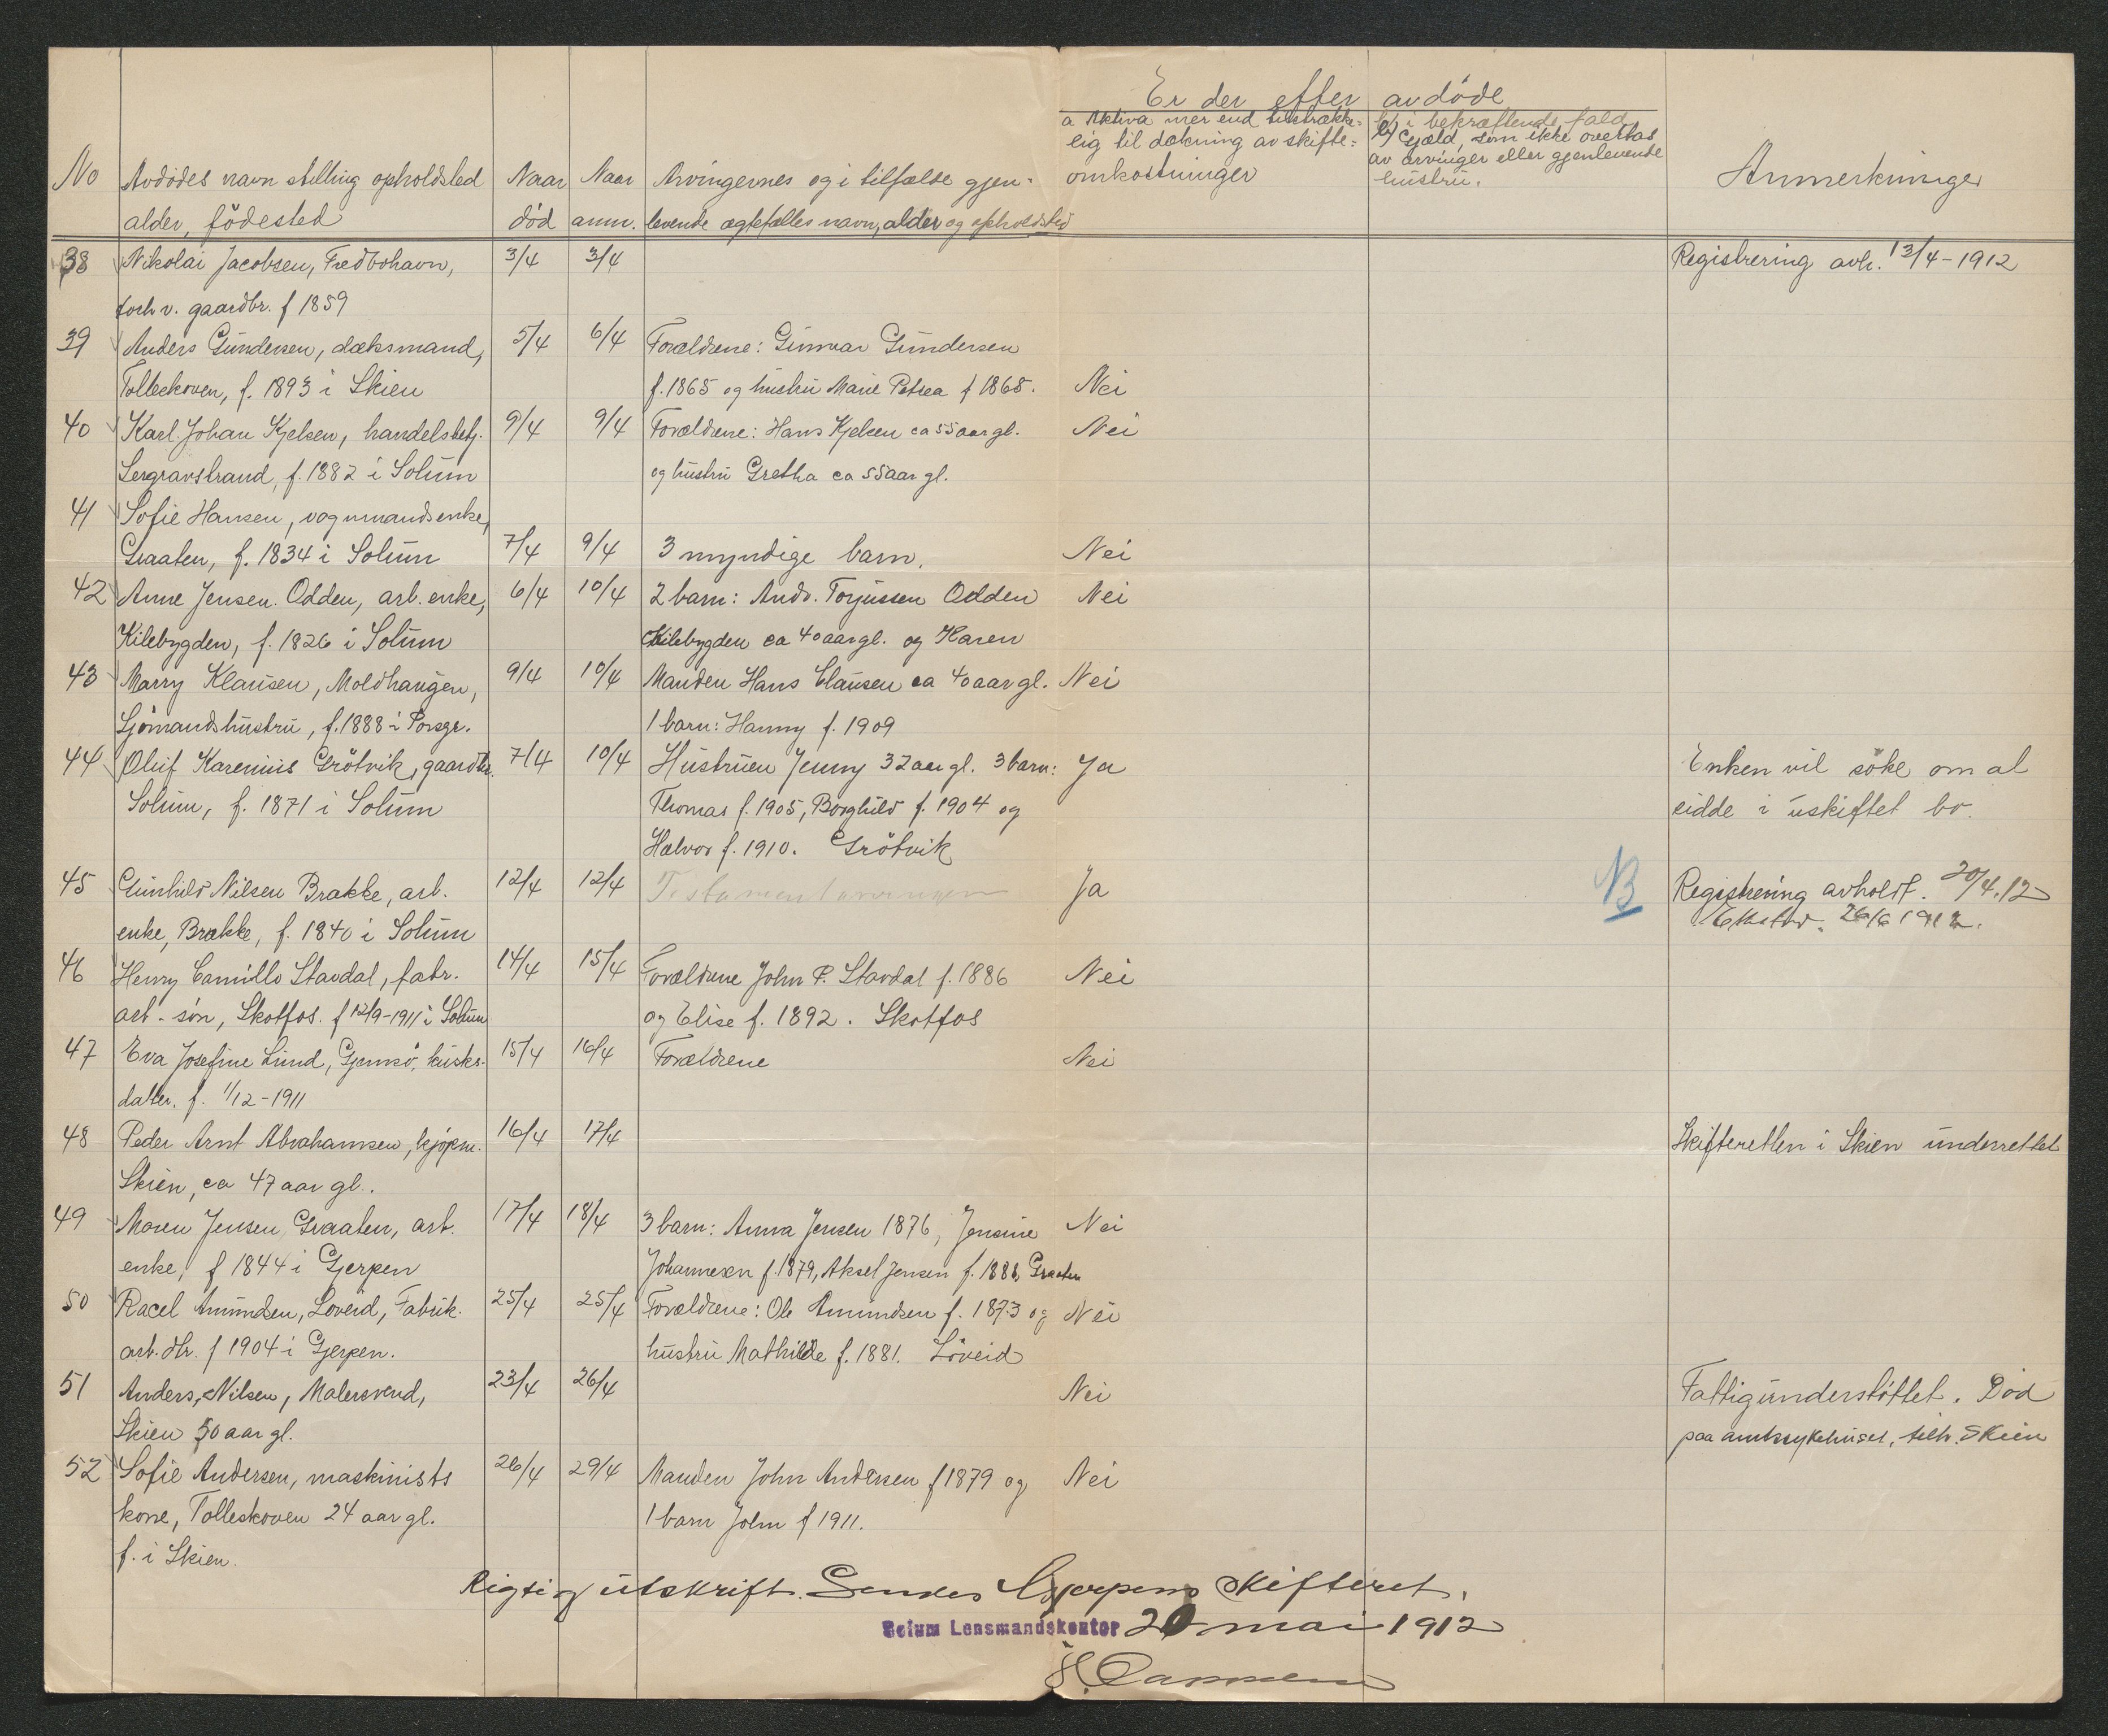 Er der efter avdöde
a Aktiva mer end tilstrække-
lig til dækning av skifte-
omkostninger
b) i bekræftende fald
Gjæld, som ikke overtas
av arvinger eller gjenlevende
hustru.
No Avdödes navn stilling opholdsted Naar Naar Arvingernes og i tilfælde gjen- Anmerkninger
alder, födested död anm. levende ægtefælles navn, alder og opholdsted
38 Nikolai Jacobsen, Fredbohavn, 3/4 3/4 Registrering avh. 13/4-1912
forh v. gaardbr. f 1859
39 Anders Gundersen, dæksmand, 5/4 6/4 Forældrene: Gunnar Gundersen
Tolleskoven, f. 1893 i Skien f. 1865 og hustru Marie Petrea f 1865. Nei
40 Karl Johan Kjelsen, handelsbetj. 9/4 9/4 Forældrene: Hans Kjelsen ca 55 aar gl. Nei
f. 1882 i Solum og hustru Gretha ca 55 aar gl.
41 Sofie Hansen, vognmandsenke,
Graaten, f. 1834 i Solum 7/4 9/4 3 myndige barn. Nei
42 Anne Jensen Odden, arb. enke, 6/4 10/4 2 barn: Andr. Torjussen Odden Nei
Kilebygden, f. 1826 i Solum Kilebygden ca 40 aar gl. og Karen
43 Marry Klausen, Moldhaugen, 9/4 10/4 Manden Hans Clausen ca 40 aar gl. Nei
Sjömandshustru, f. 1888 i Porsgr. 1 barn: Hanny f. 1909
44 Oluf Karenius Grötvik, gaardbr. 7/4 10/4 Hustruen Jenny 32 aar gl. 3 barn: Ja Enken vil söke om at
Solum, f. 1871 i Solum Thomas f. 1905, Borghild f. 1904 og sidde i uskiftet bo.
Halvor f. 1910. Grötvik
45 Gunhild Nilsen Brække, arb. 12/4 12/4 Testamentarvinger Ja NB Registrering avholdt. 20/4.12
enke, Brække, f. 1840 i Solum 26/6 1912.
46 Henry Camillo Stavdal, fabr. 14/4 15/4 Forældrene John P. Stavdal f. 1886 Nei
arb. sön, Skotfos. f 12/9-1911 i Solum og Elise f. 1892. Skotfos
47 Eva Josefine Lund, Gjemsö, kusks- 15/4 16/4 Forældrene Nei
datter. f. 1/12-1911
48 Peder Arnt Abrahamsen, kjöpm. 16/4 17/4 Skifteretten i Skien underrettet
Skien, ca 47 aar gl.
49 Maren Jensen Graaten, arb. 17/4 18/4 3 barn: Anna Jensen 1876, Jensine Nei
enke, f 1844 i Gjerpen Johannesen f. 1879, Aksel Jensen f. 1888, Graaten
50 Racel Amundsen, Löveid, Fabrik. 25/4 25/4 Forældrene: Ole Amundsen f. 1873 og Nei
arb. dtr. f 1904 i Gjerpen. hustru Mathilde f. 1881. Löveid
51 Anders Nilsen, Malersvend, 23/4 26/4 Nei Fattigunderstöttet. Död
Skien 50 aar gl. paa amtssykehuset, tilh. Skien
52 Sofie Andersen, maskinists 26/4 29/4 Manden John Andersen f 1879 og Nei
kone, Tolleskoven 24 aar gl. 1 barn John f 1911.
f. i Skien.
Rigtig utskrift. Sendes Gjerpens skifteret.
Solum Lensmandskontor 20 mai 1912